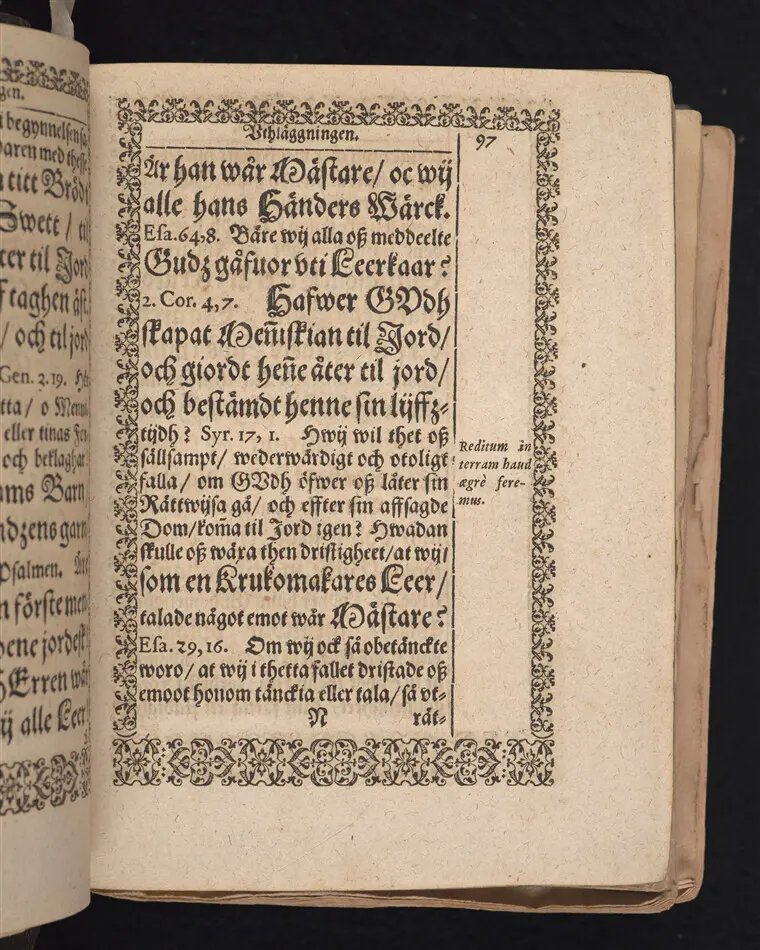 gen.
begynnelsen
aren med
titt Bröd
Swett /
ter til Jord
f taghen äst
/ och til jord
Gen. 3.19.
tta / o
eller tinas
och beklaghar
ams Barn
dzens
psalmen.
n förste
ene jordest
HErren wår
ij alle Leer
Vthläggningen.
97
År han wår Mästare / oc wij
alle hans Händers Wärck.
Esa. 64,8. Båre wij alla oß meddeelte
Gudz gåfuor vti Leerkaar?
2. Cor. 4,7. Hafwer GVdh
skapat Meñiskian til Jord /
och giordt heñe åter til jord /
och bestämdt henne sin lijffz-
tijdh? Syr. 17, 1. Hwij wil thet oß
sällsampt / wederwärdigt och otoligt
falla / om GVdh öfwer oß låter sin
Rättwijsa gå / och effter sin affsagde
Dom / kom̃a til Jord igen? Hwadan
skulle oß wäxa then dristigheet / at wij /
som en Krukomakares Leer /
talade något emot wår Mästare?
Esa. 29, 16. Om wij ock så obetänckte
woro / at wij i thetta fallet dristade oß
emoot honom tänckia eller tala / så vt-
N rät-
Reditum in
terram haud
ægrè fere-
mus.